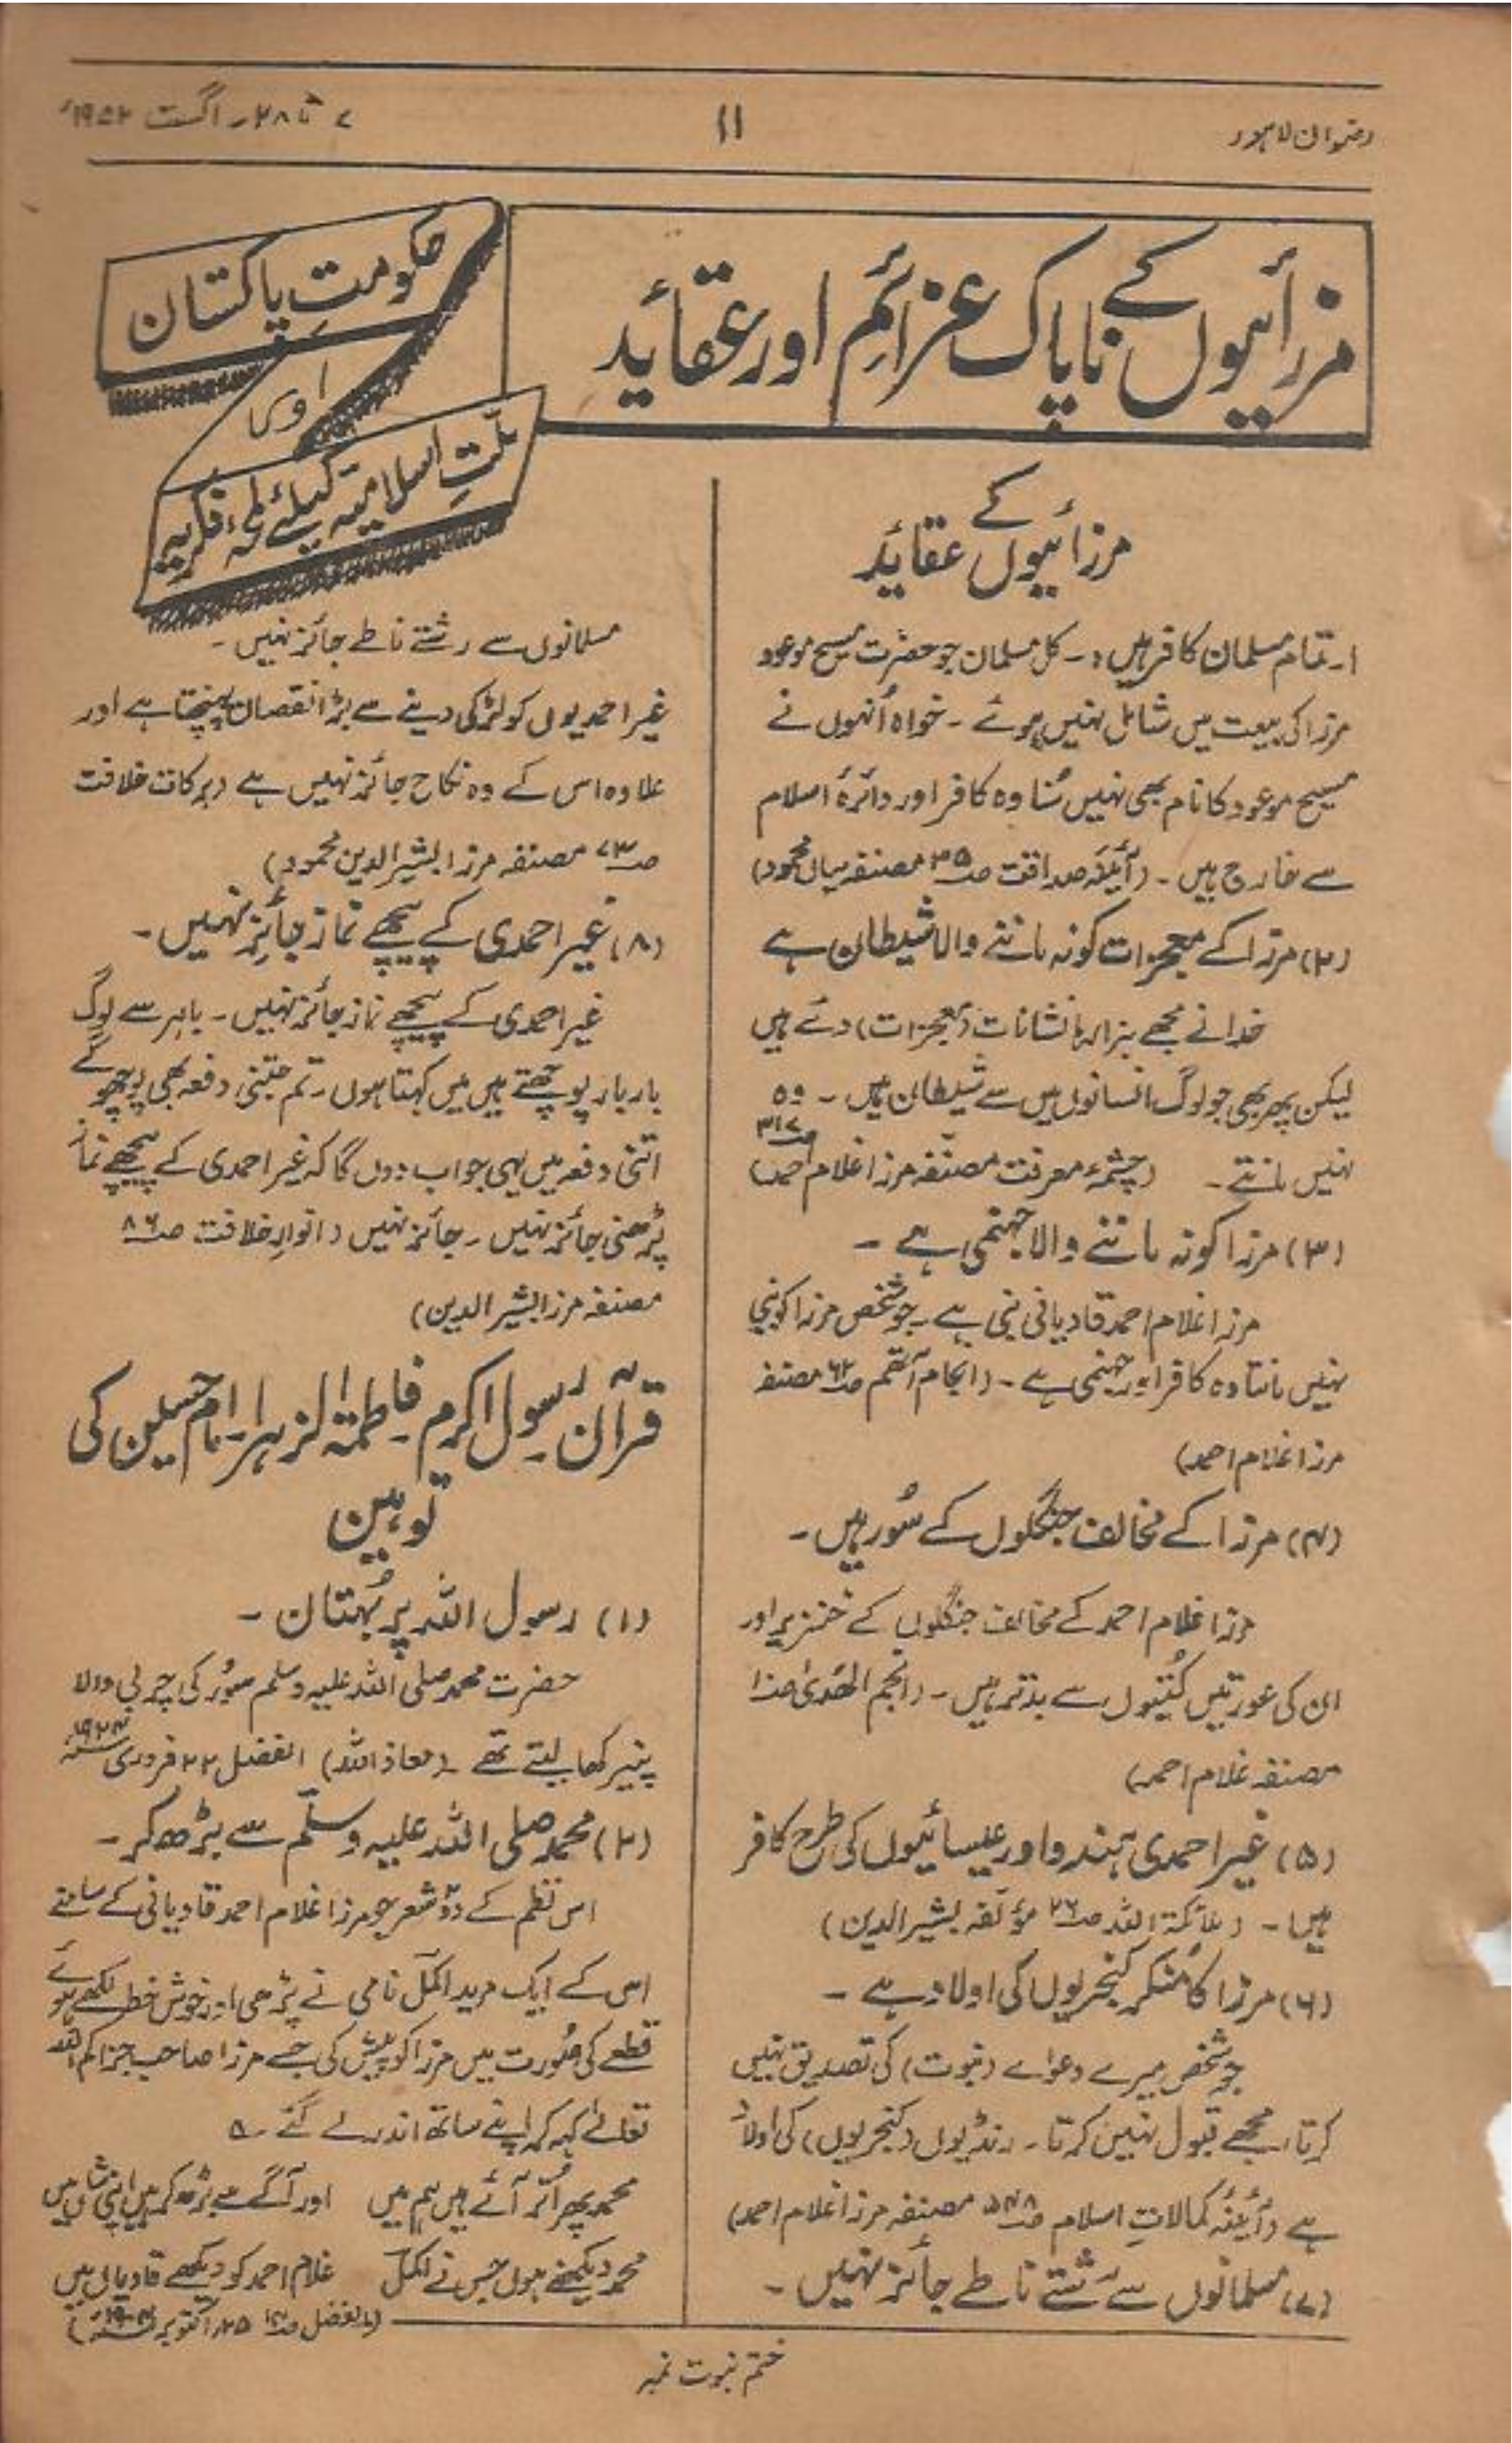 رضوان لاہور
۱۱
۷ تا ۲۸ ۔ اگست ۱۹۵۲ء
مرزائیوں کے ناپاک عزائم اور عقاید
حکومتِ پاکستان
اور
ملّتِ اسلامیہ کیلئے لمحہ فکریہ
مرزائیوں کے عقائد
۱۔ تمام مسلمان کافر ہیں :۔ کل مسلمان جو حضرت مسیح موعود
مرزا کی بیعت میں شامل نہیں ہوئے ۔ خواہ اُنہوں نے
مسیح موعود کا نام بھی نہیں سُنا وہ کافر اور دائرہ اسلام
سے خارج ہیں ۔ (آئینہ صداقت ص۳۵ مصنفہ میاں محمود)
(۲) مرزا کے معجزات کو نہ ماننے والا شیطان ہے
خدا نے مجھے ہزارہا نشانات (معجزات) دئے ہیں
لیکن پھر بھی جو لوگ انسانوں میں سے شیطان ہیں ۔ وہ
نہیں مانتے ۔ (چشمۂ معرفت مصنّفہ مرزا غلام احمد) ص۳۱۷
(۳) مرزا کو نہ ماننے والا جہنمی ہے ۔
مرزا غلام احمد قادیانی نبی ہے ۔ جو شخص مرزا کو نبی
نہیں مانتا وہ کافر اور جہنمی ہے ۔ (انجام آتھم ص۶۲ مصنفہ
مرزا غلام احمد)
(۴) مرزا کے مخالف جنگلوں کے سُور ہیں ۔
مرزا غلام احمد کے مخالف جنگلوں کے خنزیر اور
ان کی عورتیں کُتیوں سے بدتر ہیں ۔ (انجم الھدیٰ ص۱۰
مصنفہ غلام احمد)
(۵) غیر احمدی ہندو اور عیسائیوں کی طرح کافر
ہیں ۔ (ملائکۃ اللہ ص۴۶ مؤلفہ بشیر الدین)
(۶) مرزا کا مُنکر کنجریوں کی اولاد ہے ۔
جو شخص میرے دعواے (نبوت) کی تصدیق نہیں
کرتا، مجھے قبول نہیں کرتا ۔ رنڈیوں (کنجریوں) کی اولاد
ہے (آئینہ کمالاتِ اسلام ص۵۴۸ مصنفہ مرزا غلام احمد)
(۷) مسلمانوں سے رشتے ناطے جائز نہیں ۔
مسلمانوں سے رشتے ناطے جائز نہیں ۔
غیر احمدیوں کو لڑکی دینے سے بڑا نقصان پہنچتا ہے اور
علاوہ اس کے وہ نکاح جائز نہیں ہے (برکات خلافت
ص۷۳ مصنفہ مرزا بشیر الدین محمود)
(۸) غیر احمدی کے پیچھے نماز جائز نہیں ۔
غیر احمدی کے پیچھے نماز جائز نہیں ۔ باہر سے لوگ
بار بار پوچھتے ہیں میں کہتا ہوں ۔ تم جتنی دفعہ بھی پوچھو گے
اتنی دفعہ میں یہی جواب دوں گا کہ غیر احمدی کے پیچھے نماز
پڑھنی جائز نہیں ۔ جائز نہیں (انوارِ خلافت ص۸۶
مصنفہ مرزا بشیر الدین)
قرآن ۔ رسول اکرم ۔ فاطمۃ الزہرا ۔ امام حسین کی
توہین
(۱) رسول اللہ پر بُہتان ۔
حضرت محمد صلی اللہ علیہ وسلم سؤر کی چربی والا
پنیر کھا لیتے تھے ۔ (معاذ اللہ) الفضل ۲۲ فروری ۱۹۲۴ء
(۲) محمد صلی اللہ علیہ وسلّم سے بڑھ کر ۔
اس نظم کے دو شعر جو مرزا غلام احمد قادیانی کے سامنے
اس کے ایک مرید اکمل نامی نے پڑھی اور خوش خط لکھے ہوئے
قطعے کی صُورت میں مرزا کو پیش کی جسے مرزا صاحب جزاکم اللہ
تعالےٰ کہہ کر اپنے ساتھ اندر لے گئے ۔ ۵
محمد پھر اُتر آئے ہیں ہم میں اور آگے سے بڑھ کر ہیں اپنی شاں میں
محمد دیکھنے ہوں جس نے اکمل غلام احمد کو دیکھے قادیاں میں
(الفضل ۲۵ اکتوبر
ختم نبوت نمبر